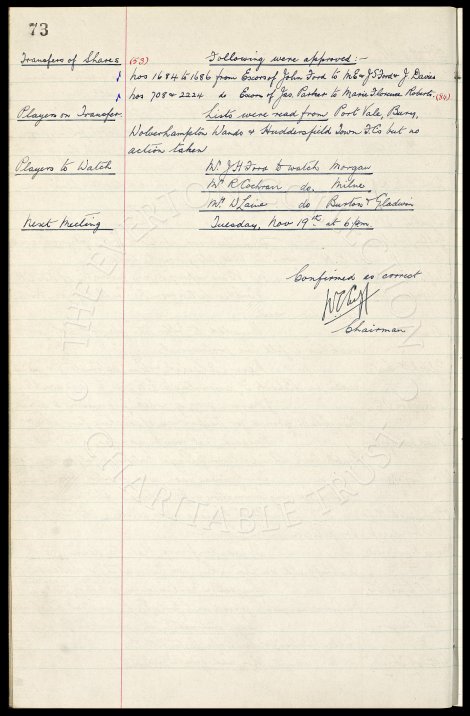 73
Transfers of Shares (53) Following were approved:-
Nos 1684 to 1686 from Exors of John Ford to & J Davies
Nos 708 & 2224 do Exors of Jas. Parker to Marie Florence Roberts. (54)
Players on Transfer. Lists were read from Port Vale, Bury,
Wolverhampton Wands & Huddersfield Town F.Cs but no
action taken
Players to Watch Mr J H Ford to watch Morgan
Mr R Cochran do. Milne
Mr W Laine do Burton & Gladwin
Next Meeting Tuesday, Nov 19th at 6 pm.
Confirmed as correct
Chairman
THE EVERTON COLLECTION CHARITABLE TRUST